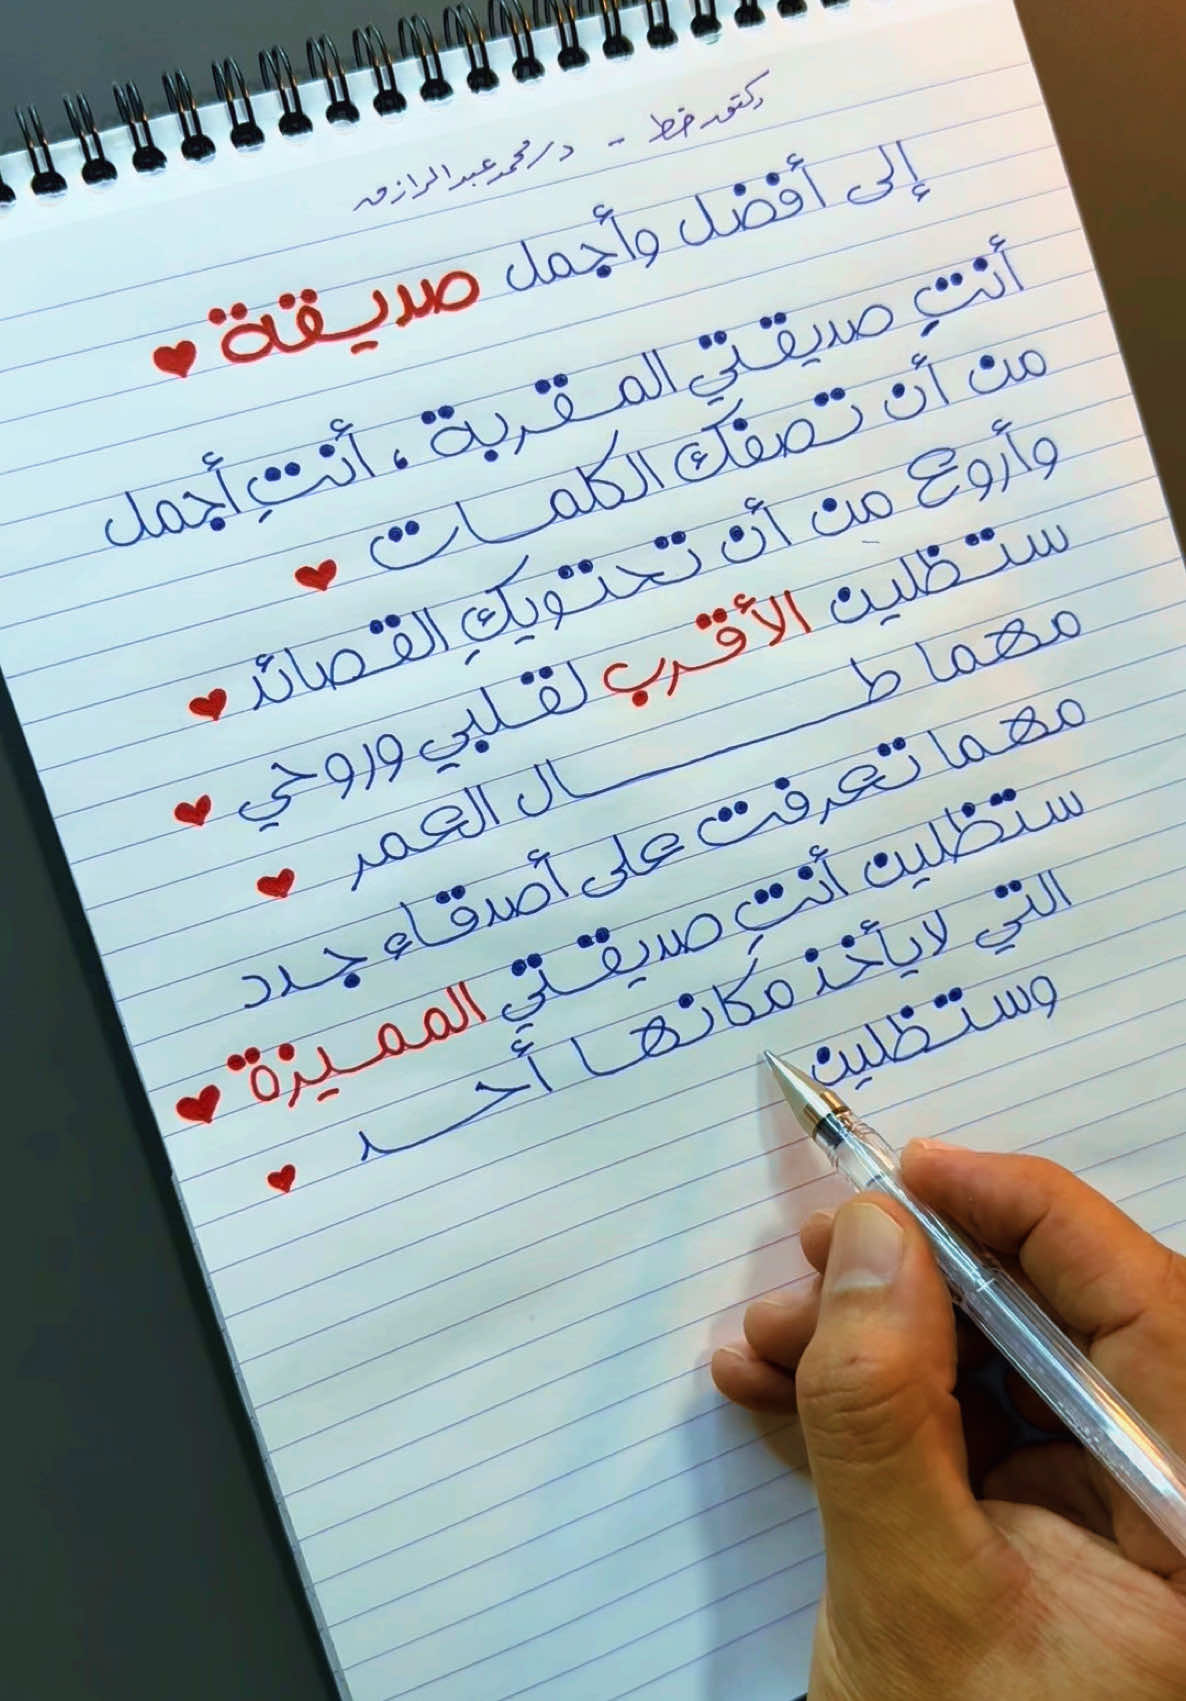 دكتور خط - د. محمد عبد الرازق
إلى أفضل وأجمل صديقة
أنتِ صديقتي المقربة ، أنتِ أجمل
من أن تصفك الكلمات
وأروع من أن تحتويكِ القصائد
ستظلين الأقرب لقلبي وروحي
مهما طـــــال العمر
مهما تعرفت على أصدقاء جدد
ستظلين أنتِ صديقتي المميزة
التي لايأخذ مكانها أحد
وستظلين